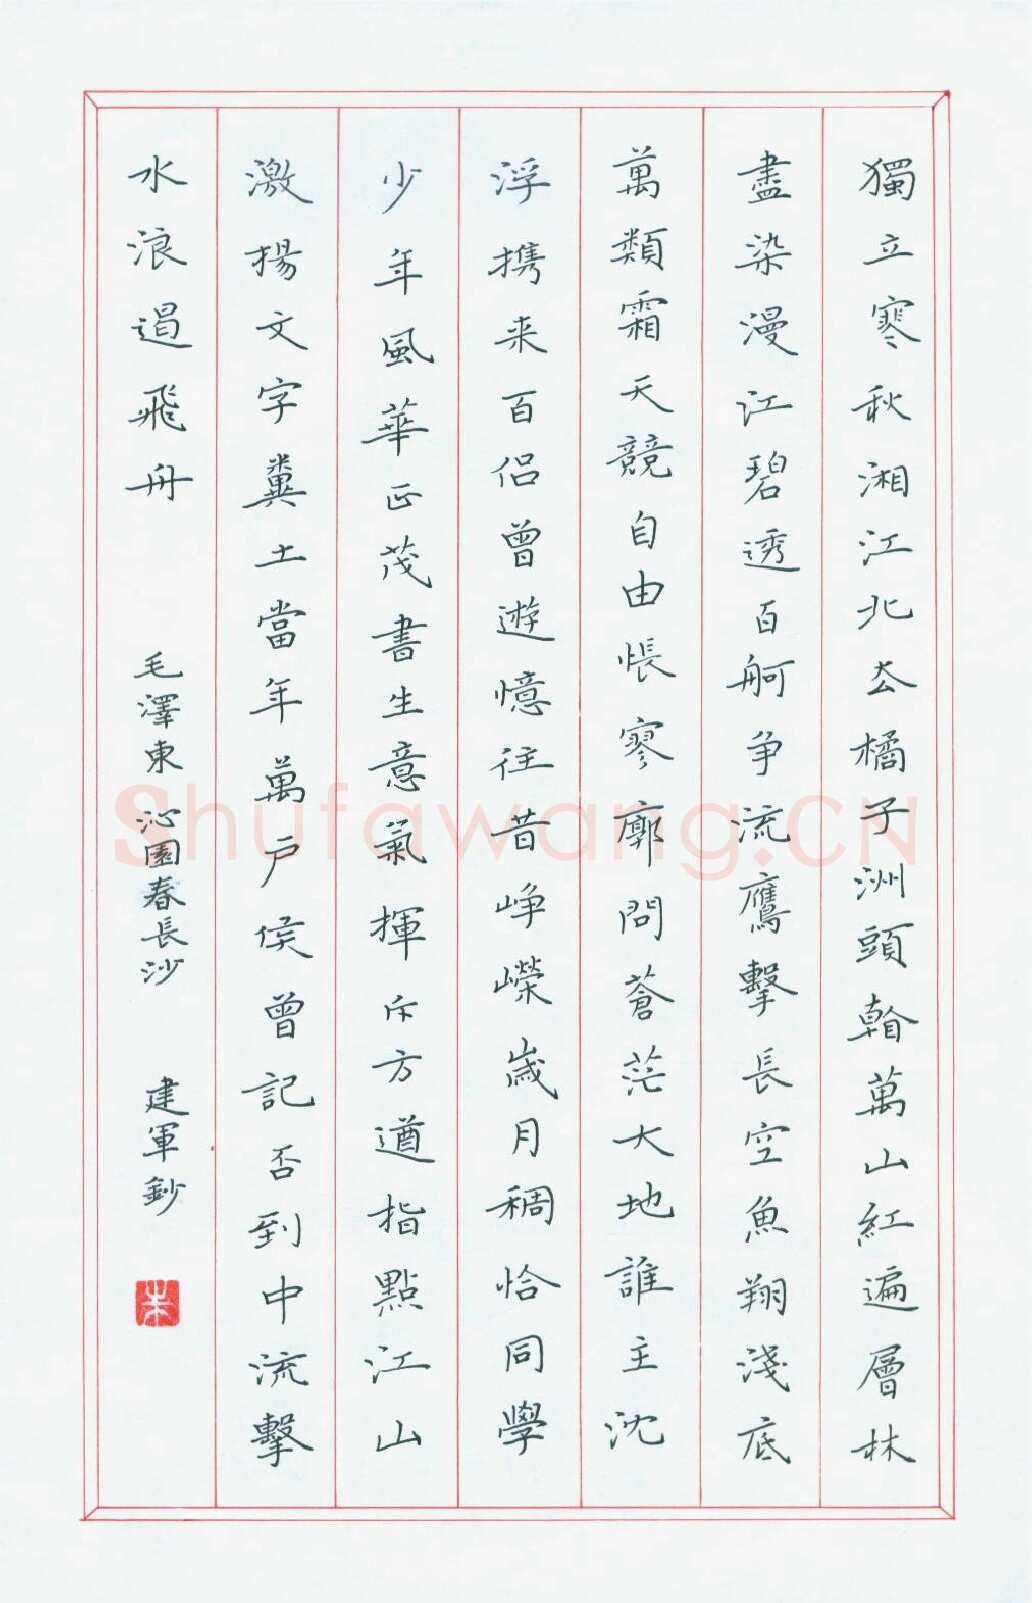 獨立寒秋湘江北去橘子洲頭看萬山紅遍層林
盡染漫江碧透百舸争流鷹擊長空魚翔淺底
萬類霜天競自由悵寥廓問蒼茫大地誰主沈
浮携来百侣曾遊憶往昔崢嶸歲月稠恰同學
少年風華正茂書生意氣揮斥方遒指點江山
激揚文字糞土當年萬户侯曾記否到中流擊
水浪遏飛舟 毛澤東 沁園春長沙 建軍鈔
朱
Shufawang.CN